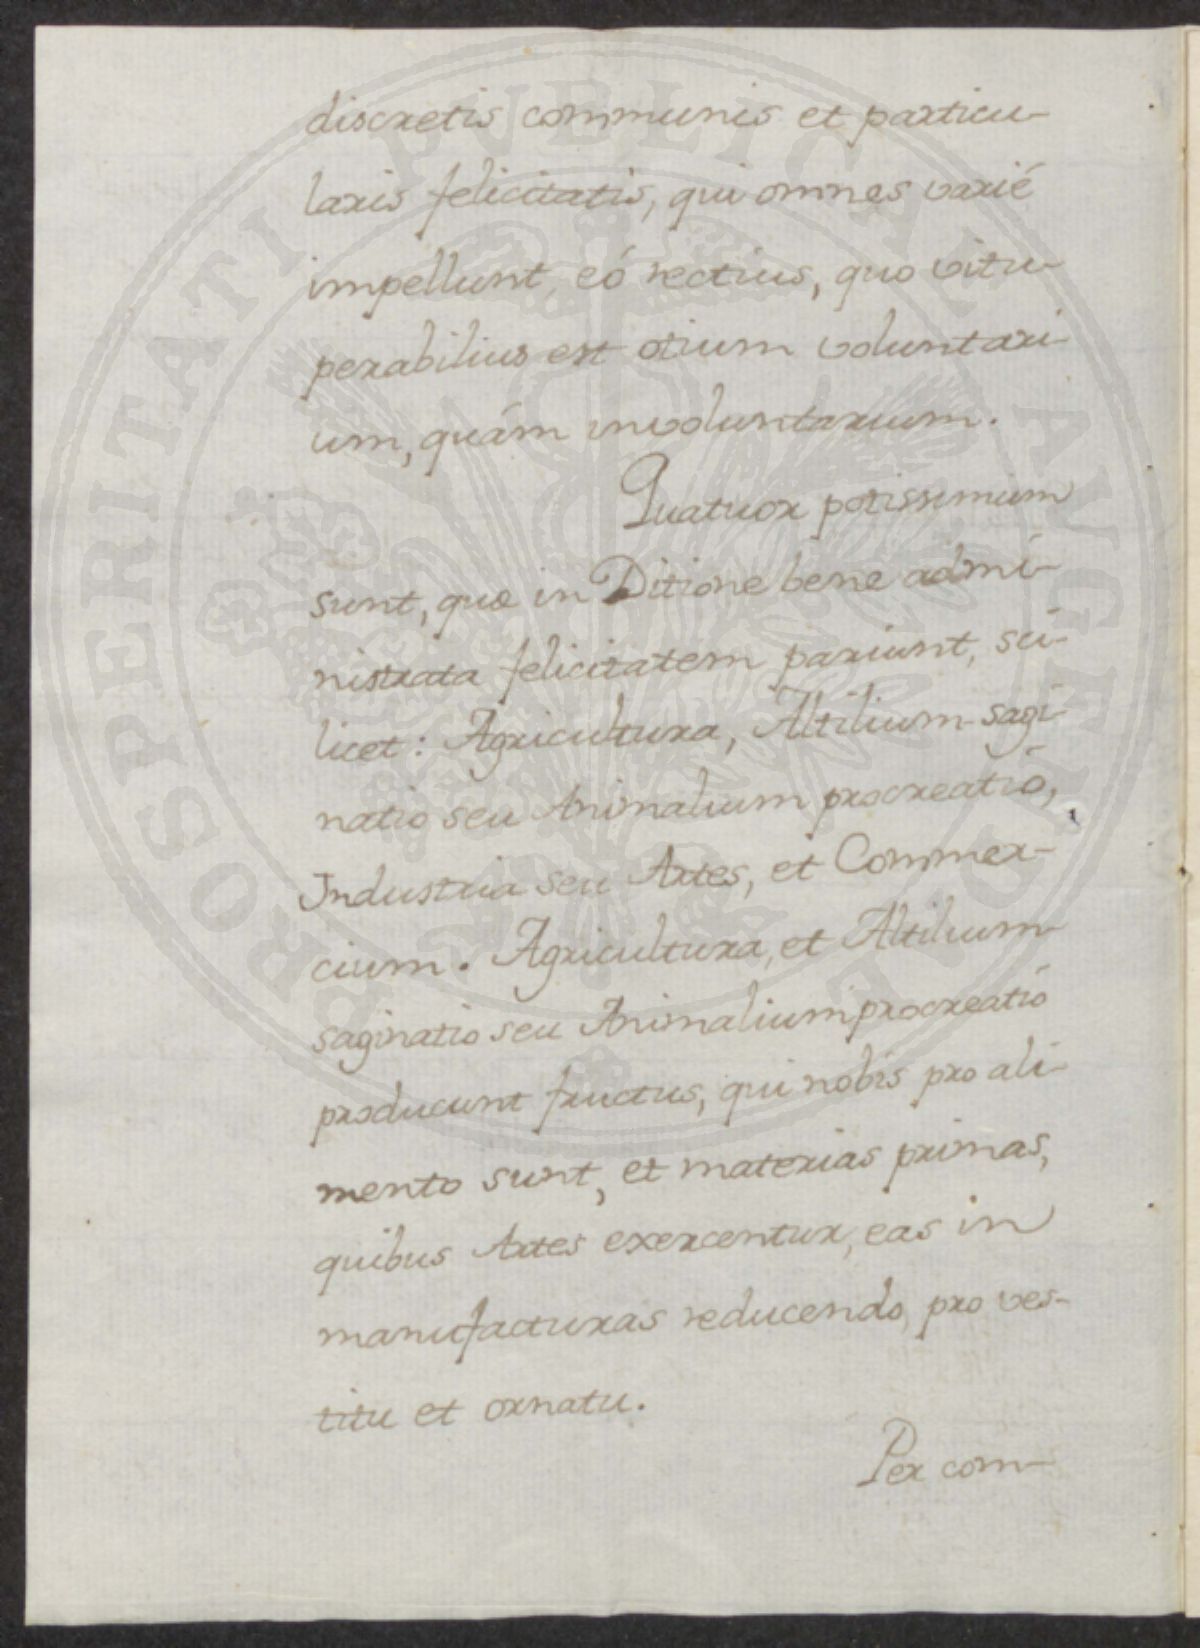 discretis communis et particu-
laris felicitatis, qui omnes varié
impellunt, eó rectius, quo vitu-
perabilius est otium voluntari-
um, quám involuntarium.
Quatuor potissimum
sunt, quæ in Ditione bene admi-
nistrata felicitatem pariunt, sci-
licet: Agricultura, Altilium sagi-
natio seu Animalium procreatió,
Industria seu Artes, et Commer-
cium. Agricultura, et Altilium
saginatio seu Animalium procreatió
producunt fructus, qui nobis pro ali-
mento sunt, et materias primas,
quibus Artes exercentur, eas in
manufacturas reducendo, pro ves-
titu et ornatu.
Per com-
PROSPERITATI PVBLICAE AVGENDAE